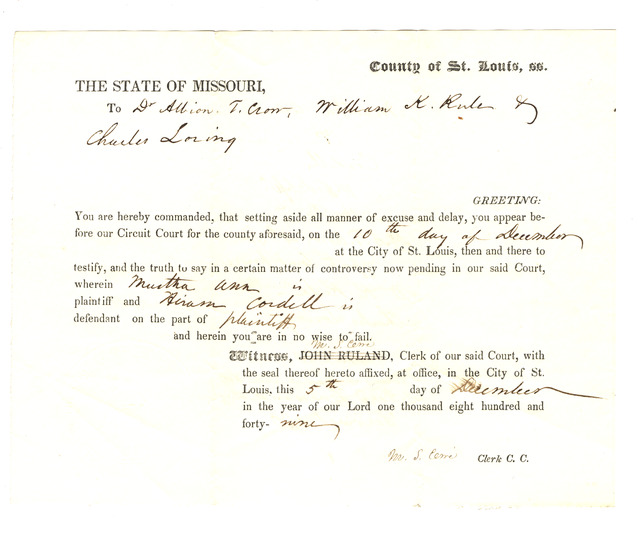 County of St. Louis, ss.
THE STATE OF MISSOURI,
To Dr Albion. T. Crow, William K. Rule &
Charles Loring
GREETING:
You are hereby commanded, that setting aside all manner of excuse and delay, you appear be-
fore our Circuit Court for the county aforesaid, on the 10th day of December
at the City of St. Louis, then and there to
testify, and the truth to say in a certain matter of controversy now pending in our said Court,
wherein Martha Ann is
plaintiff and Hiram Cordell is
defendant on the part of plaintiff
and herein you are in no wise to fail.
Witness, JOHN RULAND, Clerk of our said Court, with
the seal thereof hereto affixed, at office, in the City of St.
Louis, this 5th day of December
in the year of our Lord one thousand eight hundred and
forty- nine
Clerk C. C.